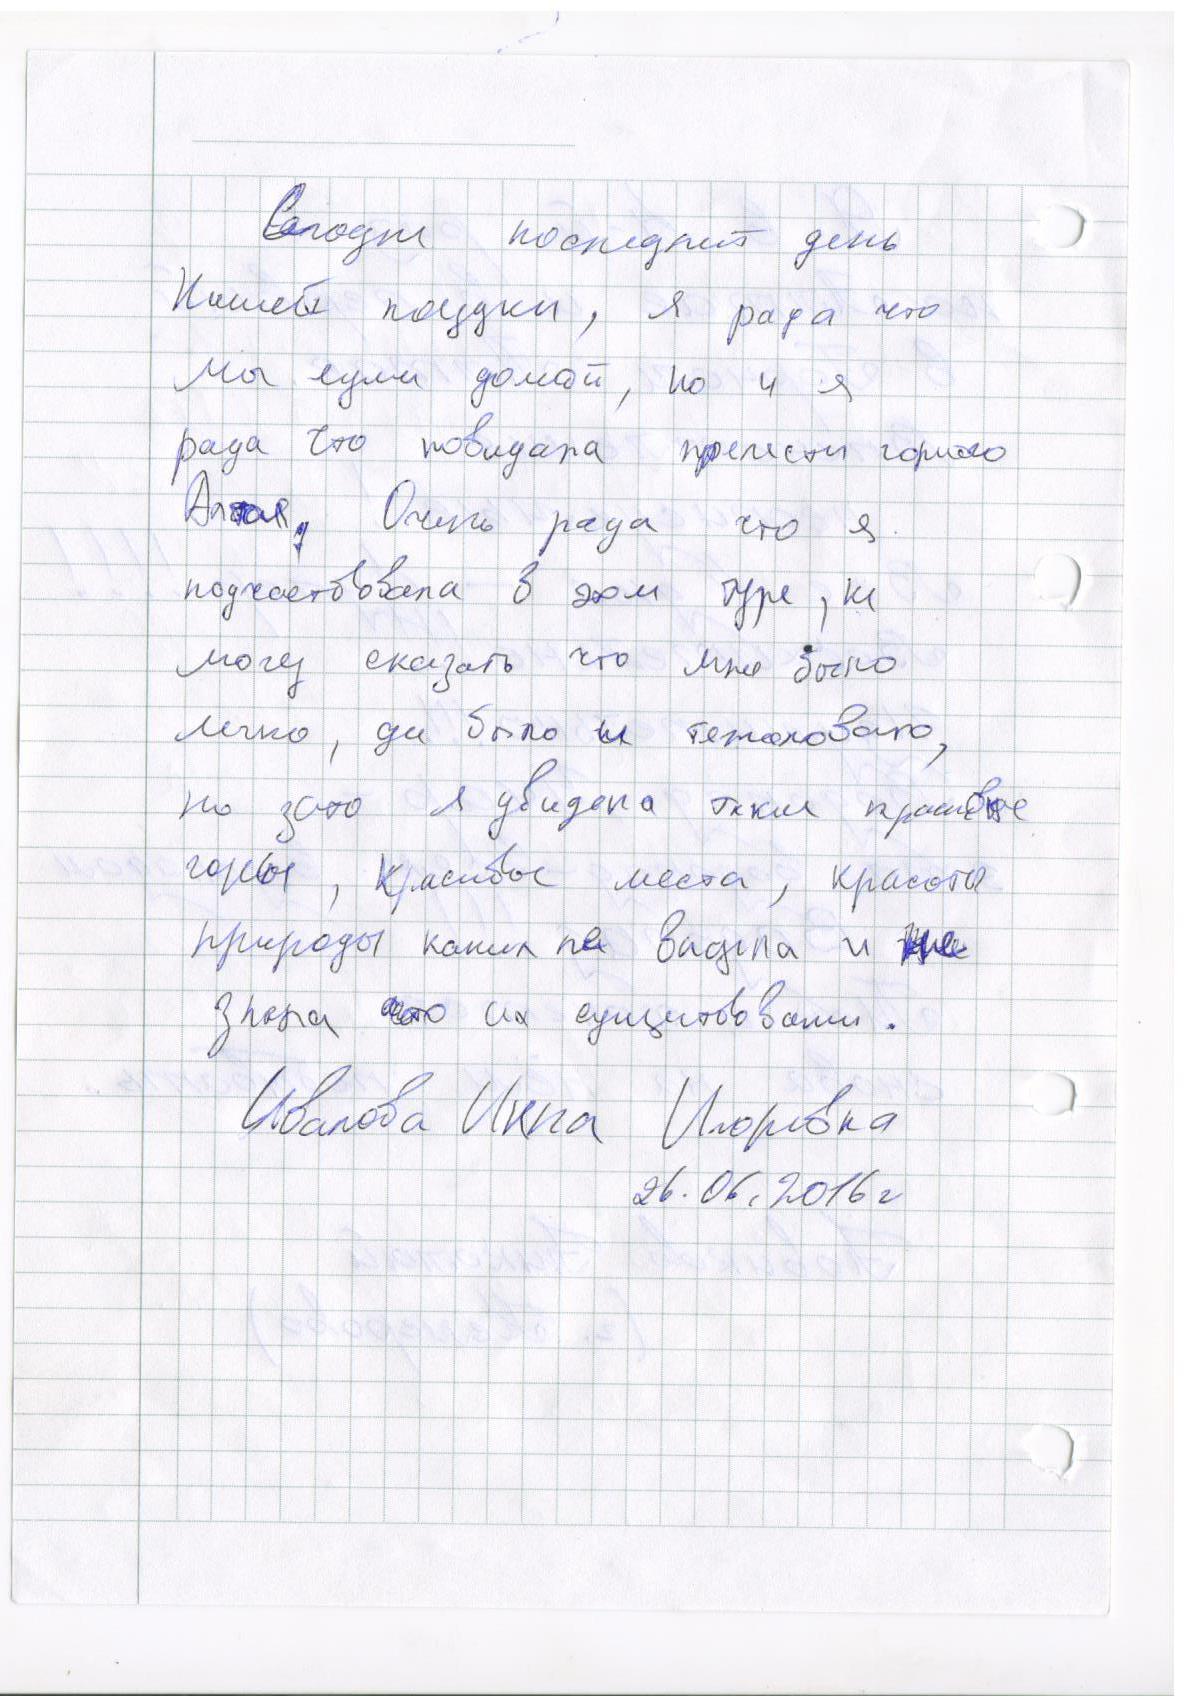 Сегодня последний день
Нашей поездки, я рада что
мы едим домой, но и я
рада что повидала прелести горного
Алтая, Очень рада что я
поучаствовала в этом туре, не
могу сказать что мне было
легко, да было и тяжеловато,
но зато я увидела такие красивые
горы, красивые места, красоты
природы каких не видела и не
знала что их существовани.
Иванова Инна Игоревна
26.06.2016г